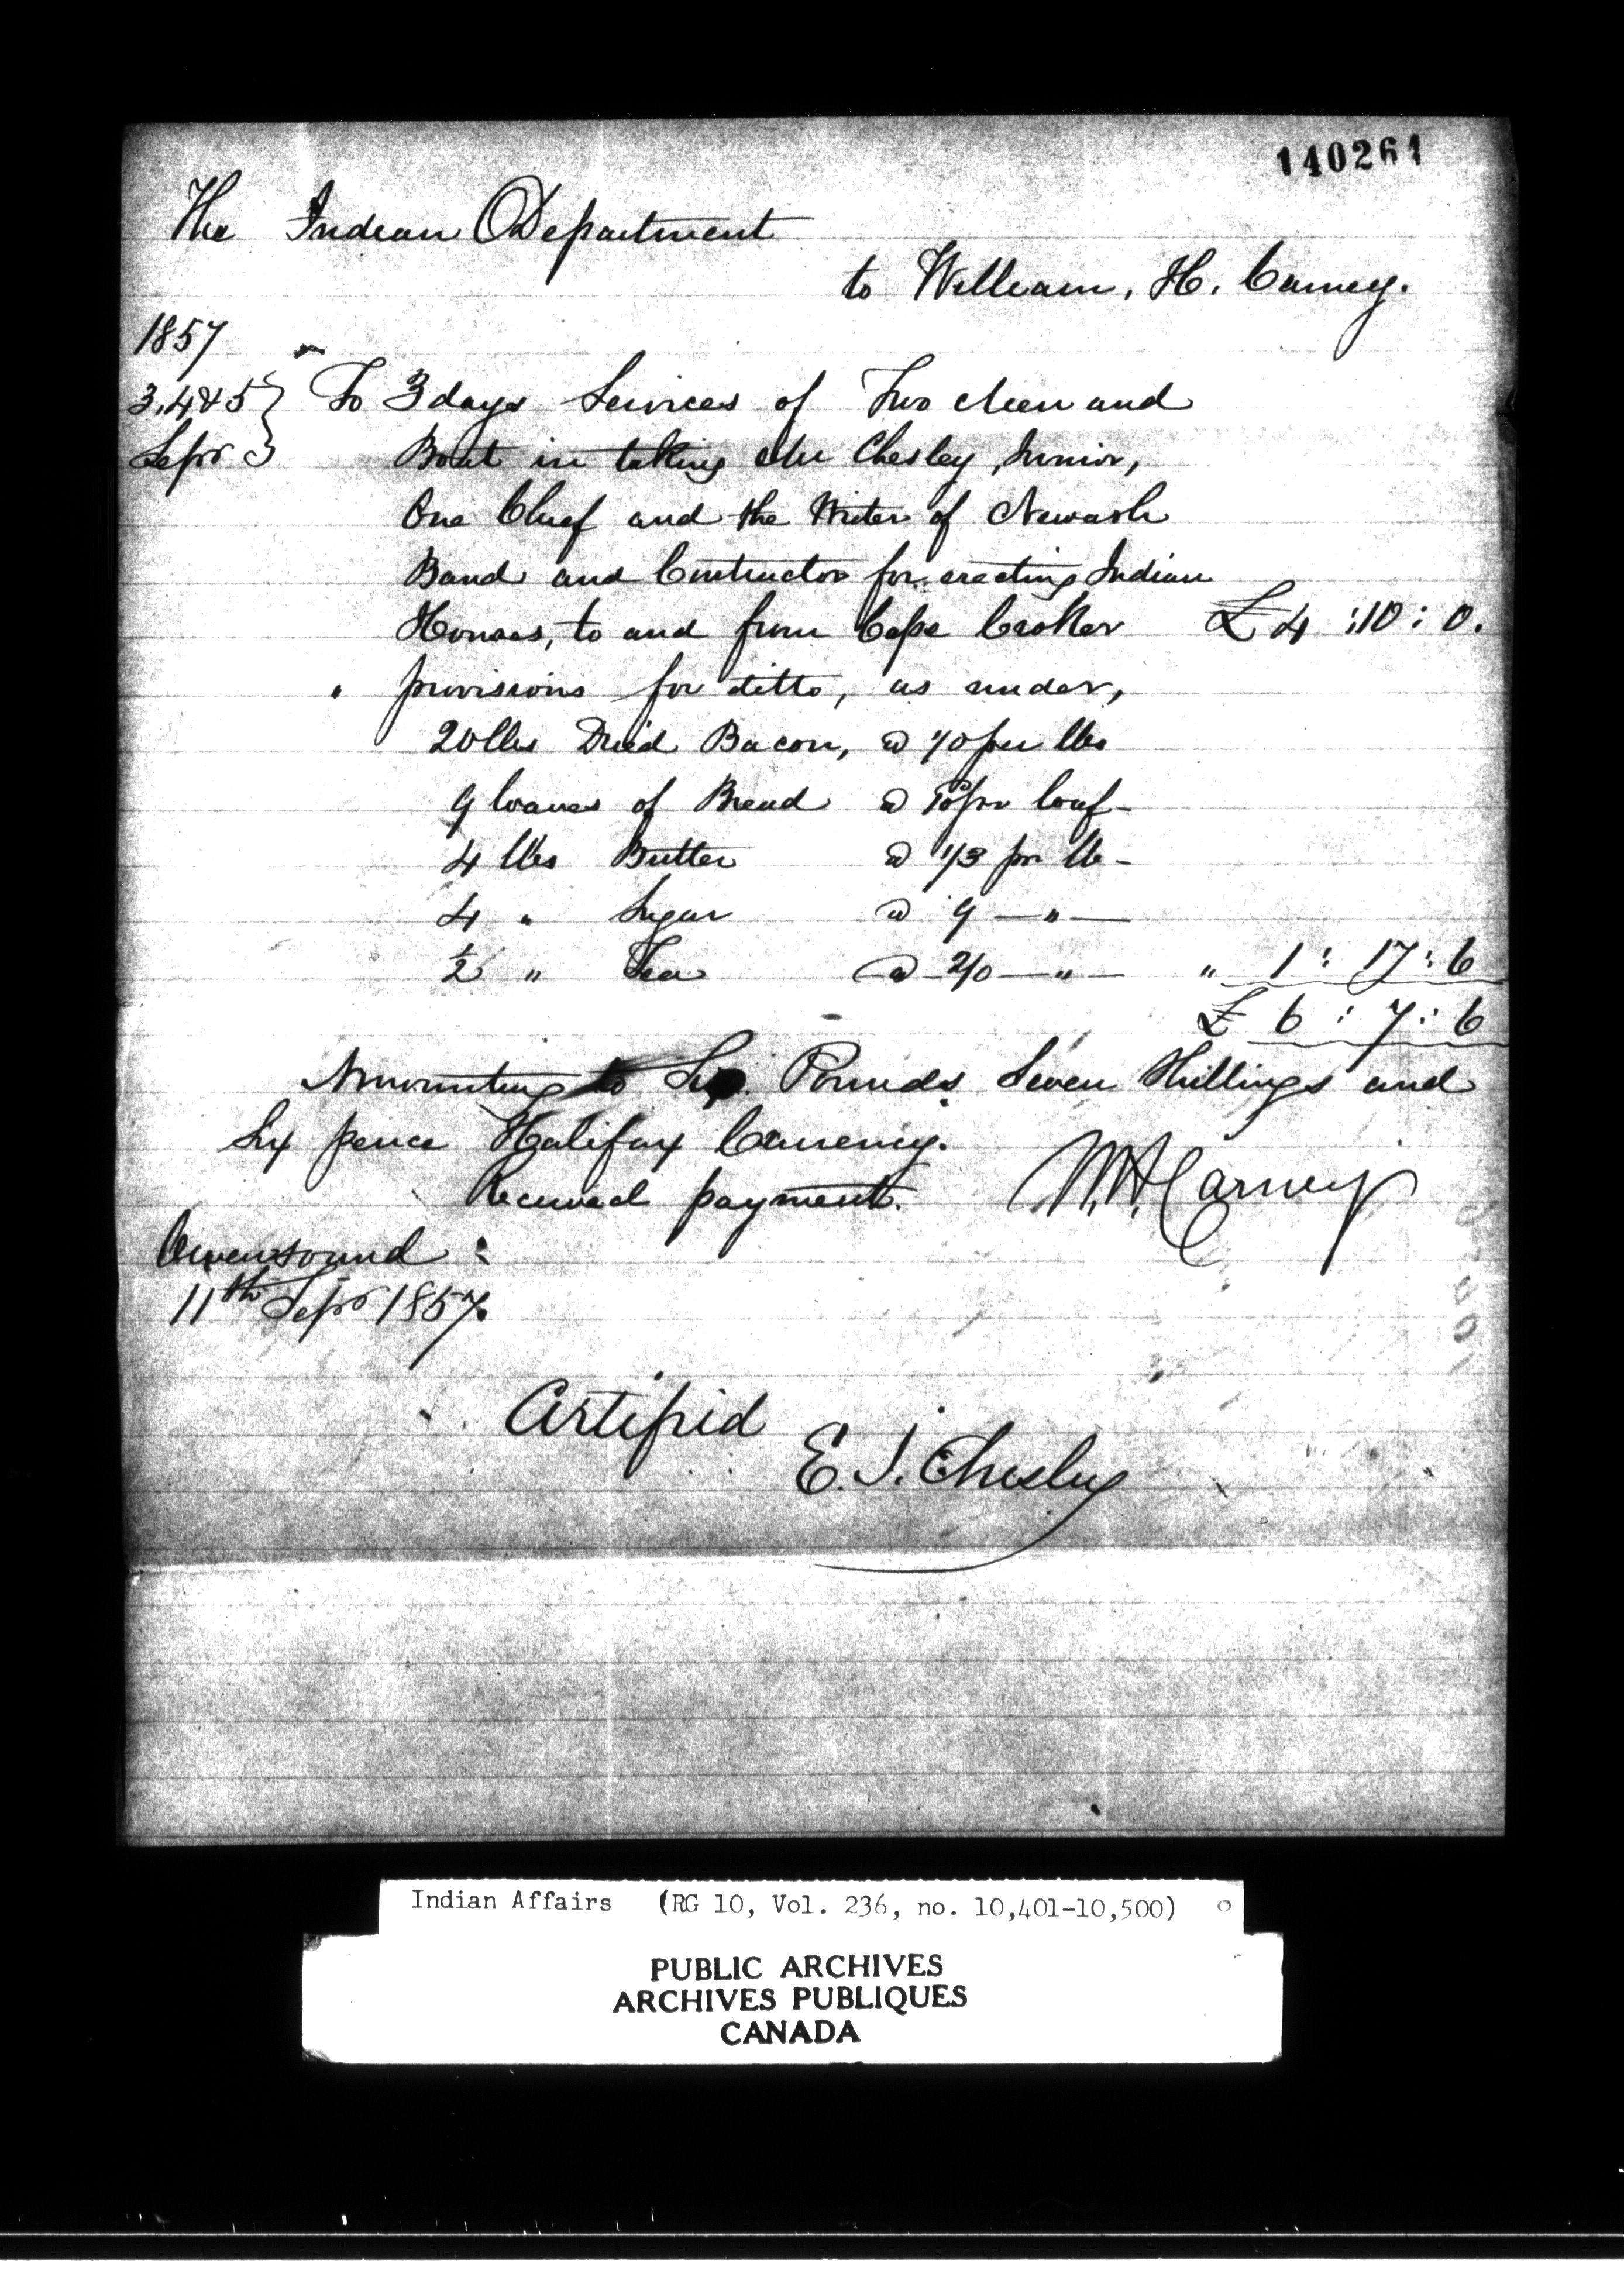 140261
The Indian Department
to William, H. Carney.
1857
3, 4 & 5 } To 3 days Services of Two Men and
Sepr } Boat in taking Mr Chesley, Junior,
One Chief and the Writer of Newash
Band and Contractor for erecting Indian
Houses, to and from Cape Croker £ 4 : 10 : 0.
" provisions for ditto, as under,
20 lbs Dried Bacon, @ 1/0 per lbs
9 loaves of Bread @ pr loaf -
4 lbs Butter @ 1/3 pr lb -
4 " Sugar @ 9 — " —
½ " Tea @ 2/0 — " — " 1 : 17 : 6
£ 6 : 7 : 6
Amounting to Six Pounds Seven Shillings and
Six pence Halifax Currency.
Received payment. W.H. Carney
Owensound :
11th Sepr 1857.
Certifid
E. J. Chesley
Indian Affairs (RG 10, Vol. 236, no. 10,401-10,500)
PUBLIC ARCHIVES
ARCHIVES PUBLIQUES
CANADA